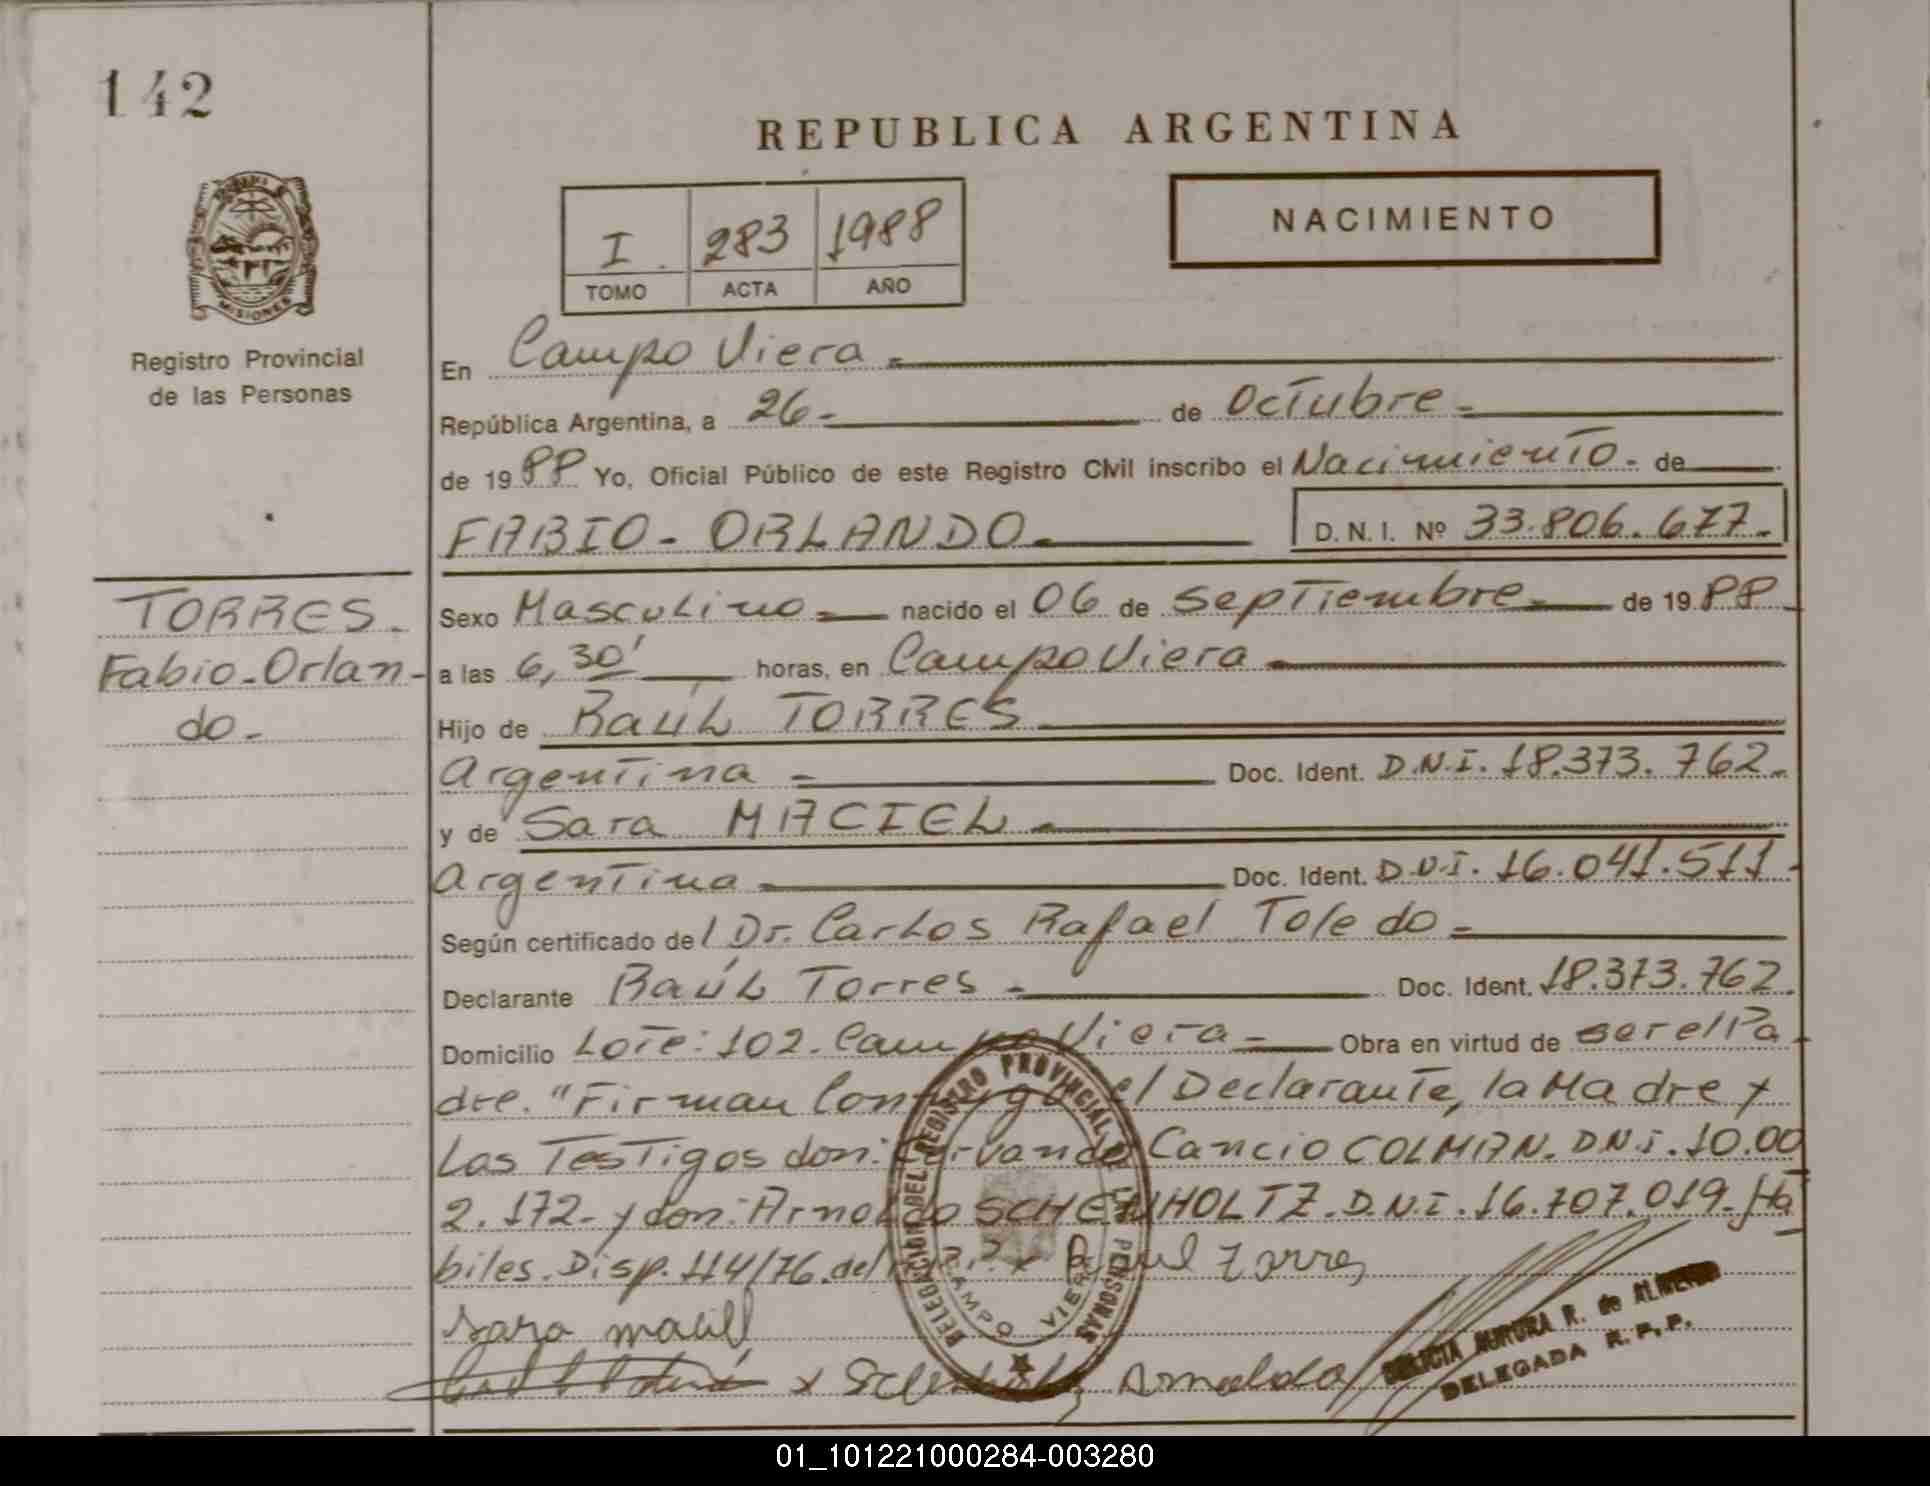 142
REPUBLICA ARGENTINA
I. 283 1988
TOMO ACTA AÑO
NACIMIENTO
MISIONES
Registro Provincial
de las Personas
En Campo Viera
República Argentina, a 26- de Octubre-
de 1988 Yo, Oficial Público de este Registro Civil inscribo el Nacimiento- de
FABIO-ORLANDO D.N.I. Nº 33.806.677-
TORRES-
Fabio-Orlan-
do-
Sexo Masculino nacido el 06 de septiembre de 1988
a las 6,30' horas, en Campo Viera
Hijo de Raúl TORRES
Argentina Doc. Ident. D.N.I. 18.373.762-
y de Sara MACIEL
Argentina Doc. Ident. D.N.I. 16.041.511-
Según certificado del Dr. Carlos Rafael Toledo-
Declarante Raúl Torres- Doc. Ident. 18.373.762-
Domicilio Lote: 102. Campo Viera- Obra en virtud de ser el Pa
dre. "Firman Conmigo el Declarante, la Madre y
Los Testigos don: Cancio COLMAN. DNI. 10.00
2.172- y don: Arnoldo SCHEMHOLTZ. D.N.I. 16.707.019- Há
biles. Disp. 114/76. del Raul Torres
Sara maciel
x Arnoldo
DELEGACION DEL REGISTRO PROVINCIAL DE LAS PERSONAS
CAMPO VIERA
AURORA R. de ALMEIDA
DELEGADA R.P.P.
01_101221000284-003280